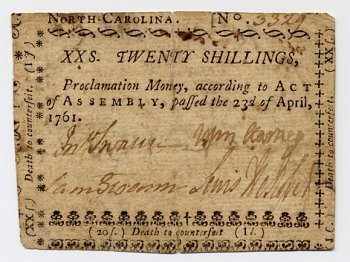 NORTH-CAROLINA. No. 3329
XXS. TWENTY SHILLINGS,
Proclamation Money, according to ACT
of ASSEMBLY, passed the 23d of April,
1761.
Jno Swann
Sam Swann Lewis
(20s.) Death to counterfeit (1l.)
Death to counterfeit. (1l.)
(XX s.) Death to counterfeit.
(XX s.)